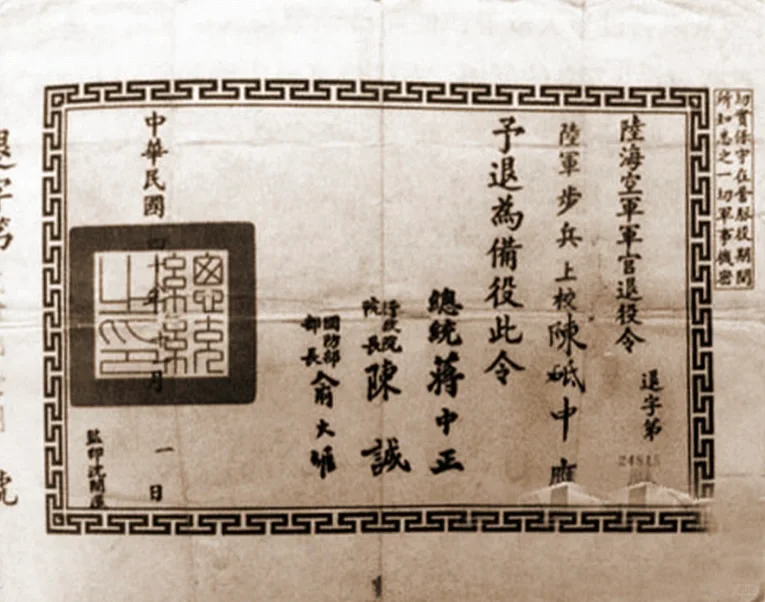 切實保守在營服役期間
所知悉之一切軍事機密
陸海空軍軍官退役令
退字第
陸軍步兵上校陳砥中應
予退為備役此令
總統蔣中正
行政院
院長陳誠
國防部
部長俞大維
中華民國四十年月一日
監印沈
退字第號